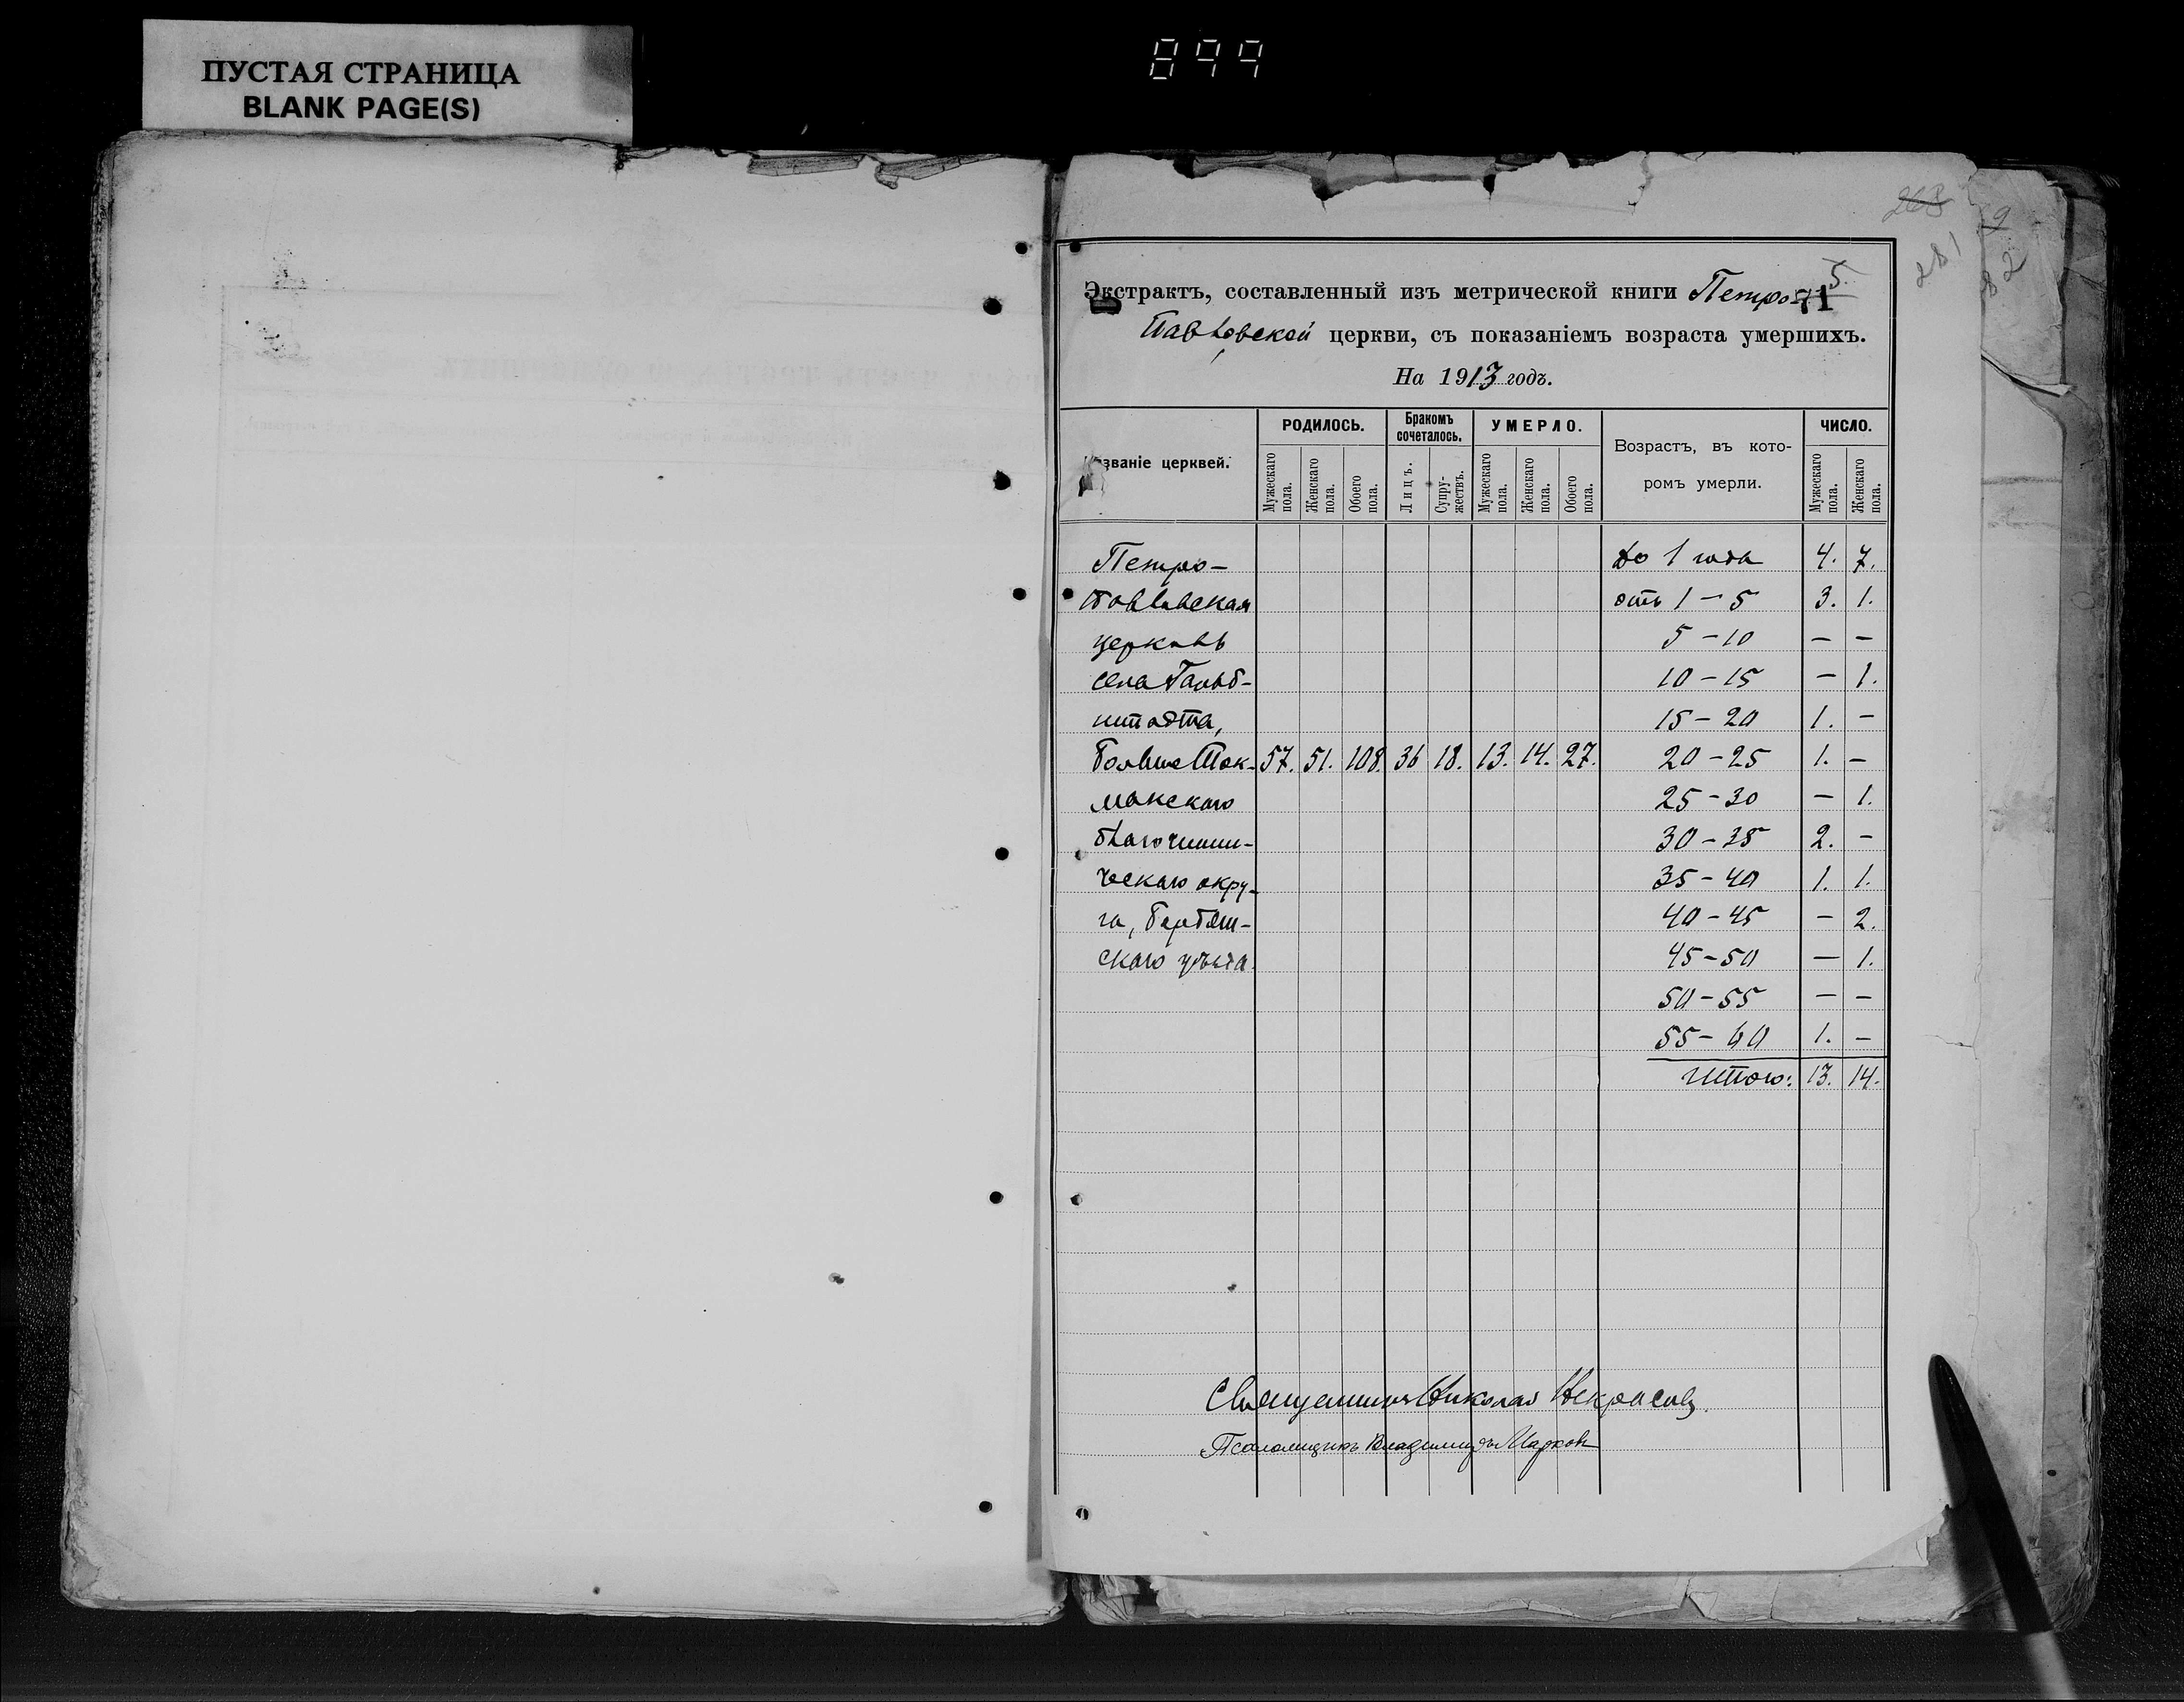 ПУСТАЯ СТРАНИЦА
BLANK PAGE(S)
899
268
281
82
5.
71
Экстрактъ, составленный изъ метрической книги Петро-
Павловской церкви, съ показаніемъ возраста умершихъ.
На 1913 годъ.
Названіе церквей.
РОДИЛОСЬ.
Мужескаго пола.
Женскаго пола.
Обоего пола.
Бракомъ сочеталось.
Лицъ.
Супружествъ.
УМЕРЛО.
Мужескаго пола.
Женскаго пола.
Обоего пола.
Возрастъ, въ кото-
ромъ умерли.
ЧИСЛО.
Мужескаго пола.
Женскаго пола.
Петро- до 1 года 4. 7.
Павловская отъ 1 – 5 3. 1.
церковь 5 – 10 – –
села Гальб- 10 – 15 – 1.
штадта, 15 – 20 1. –
Больше Ток- 57. 51. 108. 36 18. 13. 14. 27. 20 – 25 1. –
макскаго 25 – 30 – 1.
благочинни- 30 – 35 2. –
ческаго окру- 35 – 40 1. 1.
га, Бердян- 40 – 45 – 2.
скаго уѣзда. 45 – 50 – 1.
50 – 55 – –
55 – 60 1. –
Итого: 13. 14.
Священникъ Николай Некрасовъ.
Псаломщикъ Владимиръ Марков